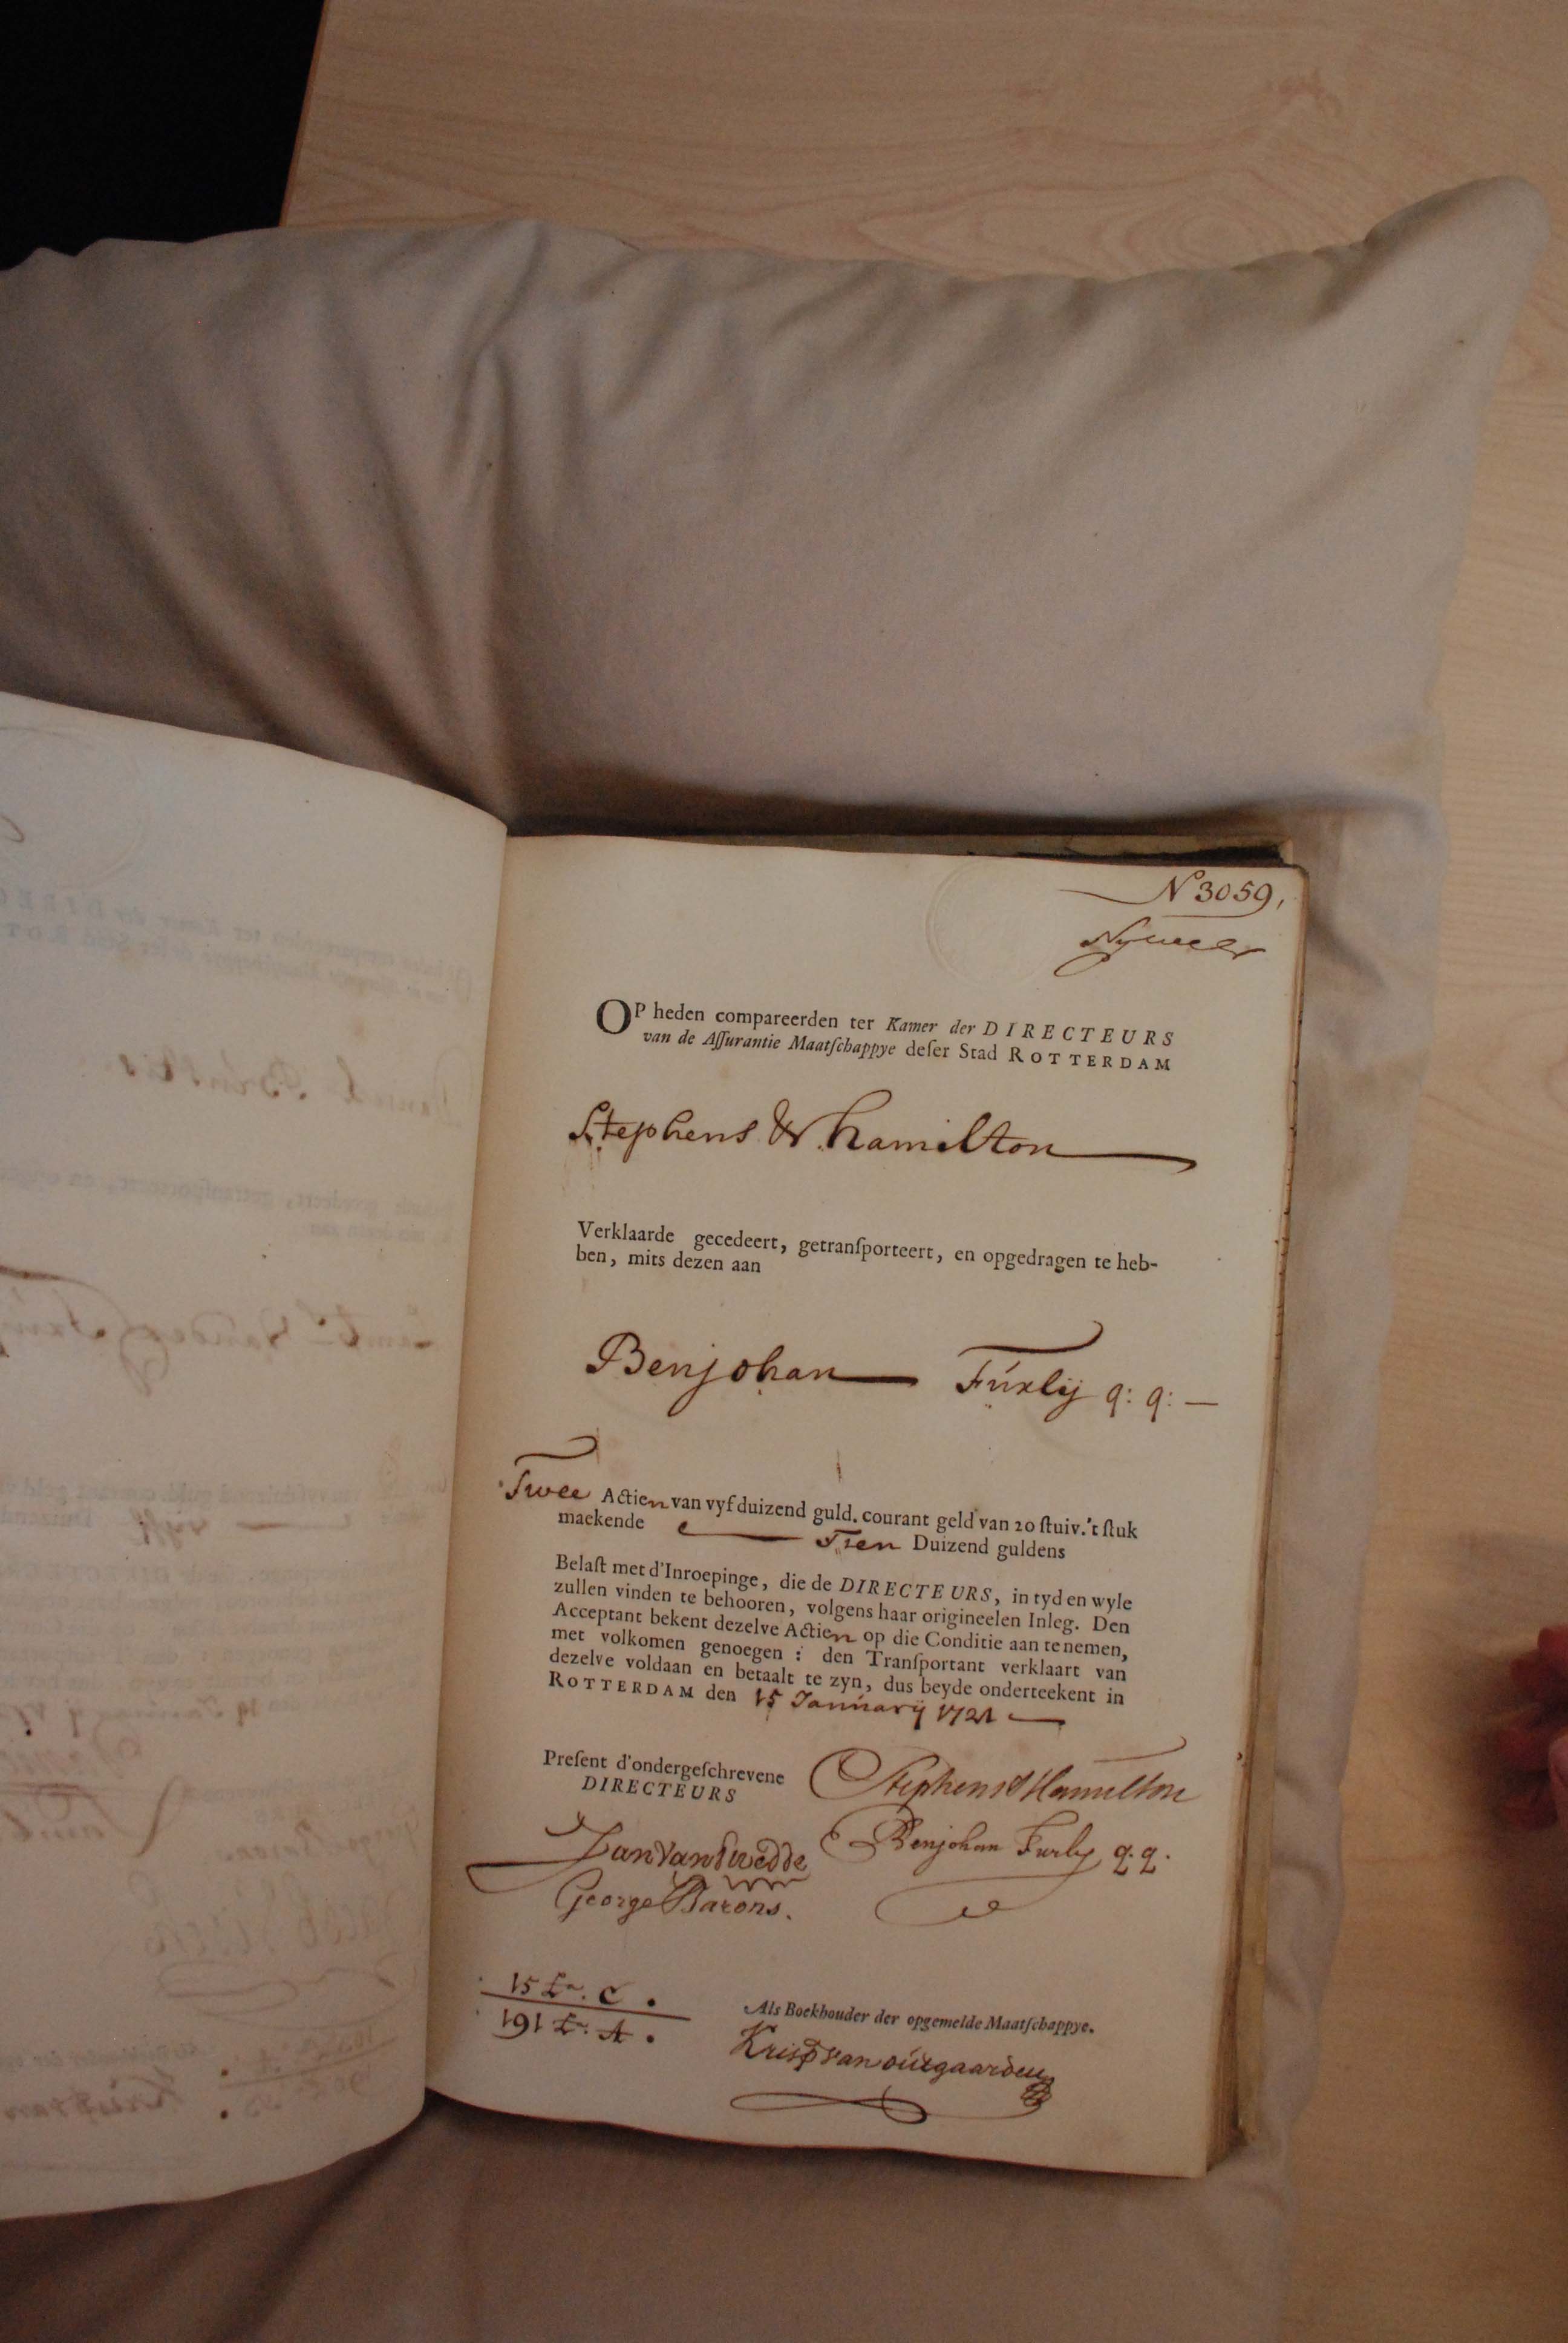 N 3059,
OP heden compareerden ter Kamer der DIRECTEURS
van de Aſſurantie Maatſchappye deſer Stad ROTTERDAM
Stephens & hamilton
Verklaarde gecedeert, getranſporteert, en opgedragen te heb-
ben, mits dezen aan
Benjohan Fúrlÿ q: q: —
Twee Actien van vyf duizend guld. courant geld van 20 ſtuiv. 't ſtuk
maekende Tien Duizend guldens
Belaſt met d'Inroepinge, die de DIRECTEURS, in tyd en wyle
zullen vinden te behooren, volgens haar origineelen Inleg. Den
Acceptant bekent dezelve Actien op die Conditie aan te nemen,
met volkomen genoegen : den Tranſportant verklaart van
dezelve voldaan en betaalt te zyn, dus beyde onderteekent in
ROTTERDAM den 15 Januarÿ 1721
Preſent d'ondergeſchrevene
DIRECTEURS
Stephens & Hamilton
Jan van Twedde
Benjohan Furly q.q.
George Barons.
15 C.
191 A.
Als Boekhouder der opgemelde Maatſchappye.
Krisp van outgaarden